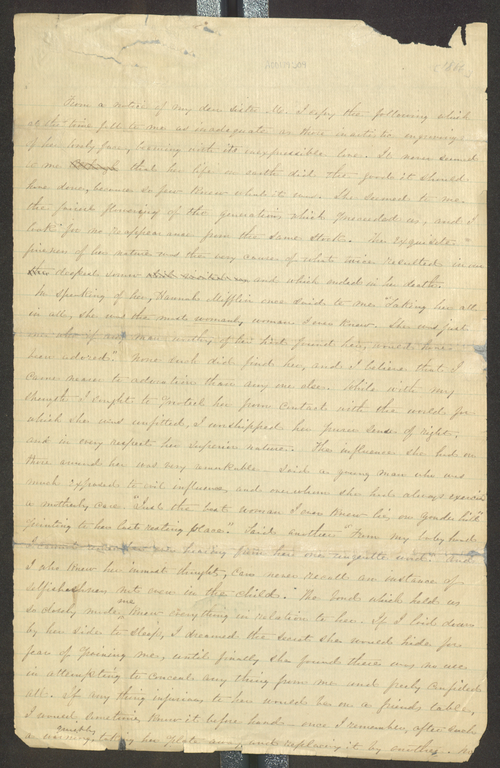 1866
From a notice of my dear sister M. I copy the following which
at the time fell to me as inadequate as those inartistic engravings
of her lovely face, beaming with its inexpressible love. It never seemed
to me that her life on earth did the good it should
have done, because so few knew what it was. She seemed to me
the fairest flowering of the generation which preceded us, and I
look for no reappearance from the same stock. The exquisite
fineness of her nature was the very cause of what once resulted in one
deepest sorrow and which ended in her death.
In speaking of her, Hannah Mifflin once said to me "Taking her all
in all, she was the most womanly woman I ever knew. She was just
one who if any man worthy of her had found her, would have
been adored." None such did find her, and I believe that I
came nearer to adoration than any one else. While with my
strength I sought to protect her from contact with the world for
which she was unfitted, I worshipped her purer sense of right,
and in every respect her superior nature. The influence she had on
those around her was very remarkable. Said a young man who was
much exposed to evil influence, and over whom she had always exercised
a motherly care "There the best woman I ever knew lies, on yonder hill"
pointing to her last resting place. Said another "From my baby hood
I cannot remember ever hearing from her one ungentle word" and
I who knew her inmost thoughts, can never recall an instance of
selfishness not even in the child. The bond which held us
so closely made me know everything in relation to her. If I laid down
by her side to sleep, I dreamed the secret she would hide for
fear of paining me, until finally she found there was no use
in attempting to conceal any thing from me and freely confided
all. If any thing injurious to her would be on a friends table,
I would, sometimes know it before hand - once I remember, after such
a warning quickly taking her plate away and replacing it by another.